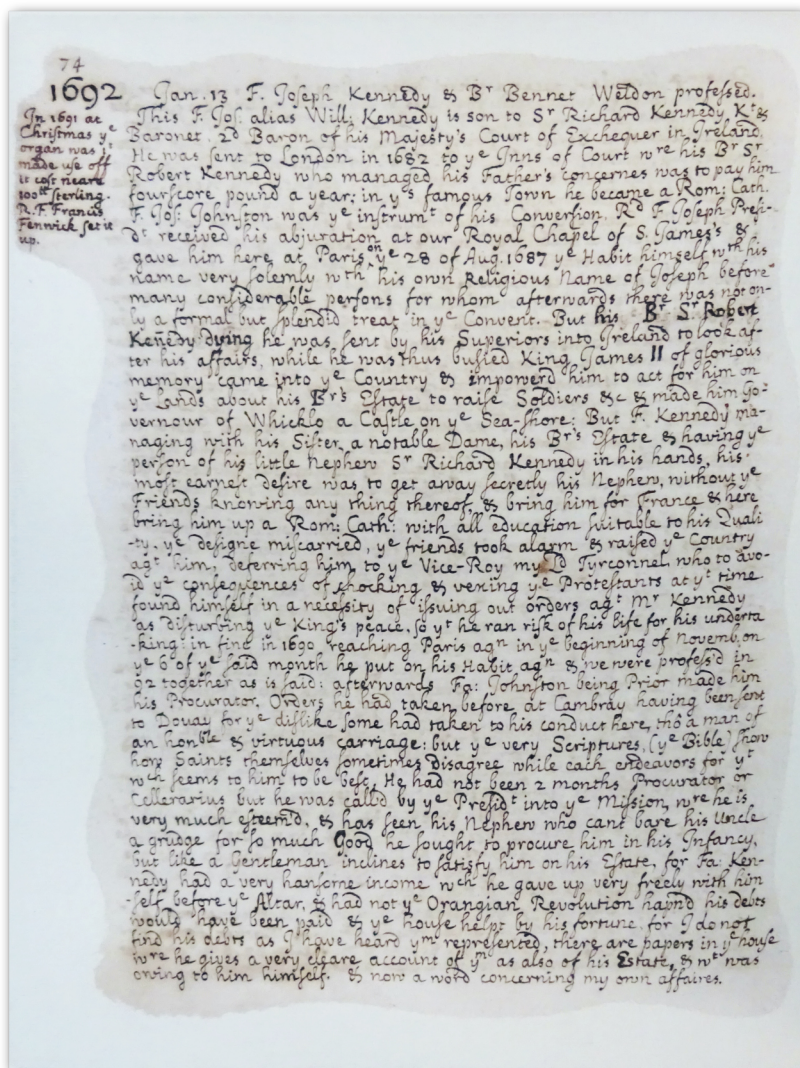 74
1692
In 1691 at
Christmas yᵉ
organ was 1ˢᵗ
made use off
it cost neare
100ˡᵗ sterling.
R. F. Francis
Fenwick set it
up.
Jan. 13 F. Joseph Kennedy & Bʳ Bennet Weldon professed.
This F. Jos: alias Will: Kennedy is son to Sʳ Richard Kennedy, Kᵗ &
Baronet. 2D Baron of his Majesty's Court of Exchequer in Ireland.
He was sent to London in 1682 to yᵉ Inns of Court wʳᵉ his Bʳ Sʳ
Robert Kennedy who managed his Father's concernes was to pay him
fourscore pound a year: in yˢ famous Town he became a Rom: Cath.
F. Jos: Johnston was yᵉ instrumᵗ of his Conversion. Rᵈ F. Joseph Presi-
dᵗ received his abjuration at our Royal Chapel of S. James's &
gave him here at Paris on yᵉ 28 of Aug. 1687 yᵉ Habit himself wᵗʰ his
name very solemly wᵗʰ his own Religious Name of Joseph before
many considerable persons for whom afterwards there was not on-
ly a formal but splendid treat in yᵉ Convent. But his Bʳ Sʳ Robert
Keñedy dying he was sent by his Superiors into Ireland to look af-
ter his affairs, while he was thus busied King James II of glorious
memory came into yᵉ Country & impowerd him to act for him on
yᵉ Lands about his Bʳ's Estate to raise Soldiers &c & made him Go-
vernour of Whicklo a Castle on yᵉ Sea-shore: But F. Kennedy ma-
naging with his Sister, a notable Dame, his Bʳ's Estate & having yᵉ
person of his little Nephew Sʳ Richard Kennedy in his hands, his
most earnest desire was to get away secretly his Nephew, without yᵉ
Friends knowing any thing thereof, & bring him for France & here
bring him up a Rom: Cath: with all education suitable to his Quali
-ty. yᵉ designe miscarried, yᵉ friends took alarm & raised yᵉ Country
agᵗ him, deferring him to yᵉ Vice-Roy my Ld Tyrconnel, who to avo-
id yᵉ consequences of shocking & vexing yᵉ Protestants at yᵗ time
found himself in a necessity of issuing out orders agᵗ Mʳ Kennedy
as disturbing yᵉ King's peace, so yᵗ he ran risk of his life for his underta
-king: in fine in 1690 reaching Paris agⁿ in yᵉ beginning of Novemb, on
yᵉ 6 of yᵉ said month he put on his Habit agⁿ & we were profess'd in
92 together as is said: afterwards Fa: Johnston being Prior made him
his Procurator. Orders he had taken before at Cambray having been sent
to Douay for yᵉ dislike some had taken to his conduct here, tho a man of
an honᵇˡᵉ & virtuous carriage: but yᵉ very Scriptures, (yᵉ Bible) show
how Saints themselves sometimes disagree while each endeavors for yᵗ
wᶜʰ seems to him to be best. He had not been 2 months Procurator or
Cellerarius but he was call'd by yᵉ Presidᵗ into yᵉ Mission, wʳᵉ he is
very much esteem'd, & has seen his Nephew who cant bare his Uncle
a grudge for so much Good he sought to procure him in his Infancy,
but like a Gentleman inclines to satisfy him on his Estate, for Fa: Ken-
nedy had a very hansome income wᶜʰ he gave up very freely with him
-self before yᵉ Altar, & had not yᵉ Orangian Revolution hapnd his debts
would have been paid & yᵉ house helpt by his fortune, for I do not
find his debts as I have heard yᵐ represented, there are papers in yᵉ house
wʳᵉ he gives a very cleare account of yᵐ as also of his Estate, & wᵗ was
owing to him himself. & now a word concerning my own affaires.